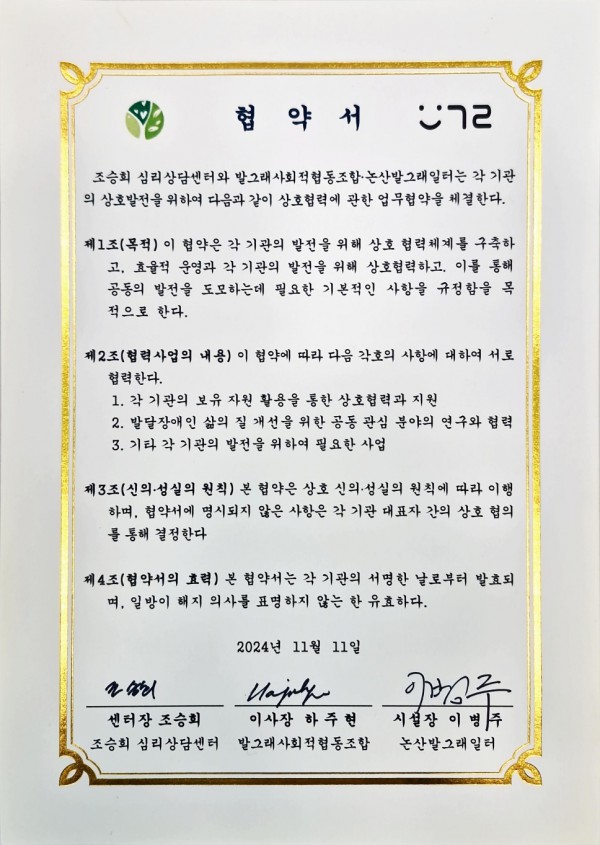 협 약 서
조승희 심리상담센터와 발그래사회적협동조합·논산발그래일터는 각 기관
의 상호발전을 위하여 다음과 같이 상호협력에 관한 업무협약을 체결한다.
제1조(목적) 이 협약은 각 기관의 발전을 위해 상호 협력체계를 구축하
고, 효율적 운영과 각 기관의 발전을 위해 상호협력하고. 이를 통해
공동의 발전을 도모하는데 필요한 기본적인 사항을 규정함을 목
적으로 한다.
제2조(협력사업의 내용) 이 협약에 따라 다음 각호의 사항에 대하여 서로
협력한다.
1. 각 기관의 보유 자원 활용을 통한 상호협력과 지원
2. 발달장애인 삶의 질 개선을 위한 공동 관심 분야의 연구와 협력
3. 기타 각 기관의 발전을 위하여 필요한 사업
제3조(신의·성실의 원칙) 본 협약은 상호 신의·성실의 원칙에 따라 이행
하며, 협약서에 명시되지 않은 사항은 각 기관 대표자 간의 상호 협의
를 통해 결정한다
제4조(협약서의 효력) 본 협약서는 각 기관의 서명한 날로부터 발효되
며, 일방이 해지 의사를 표명하지 않는 한 유효하다.
2024년 11월 11일
센터장 조승희 이사장 하주현 시설장 이병주
조승희 심리상담센터 발그래사회적협동조합 논산발그래일터